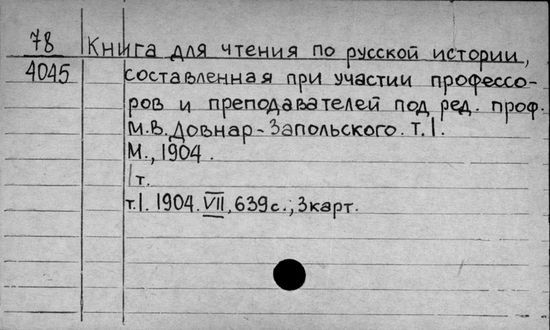 78
4045
Книга для чтения по русской истории,
составленная при участии профессо-
ров и преподавателей под ред. проф.
М.В. Довнар-Запольского. Т.I.
М., 1904.
1т.
т.I. 1904. VII, 639с.; 3карт.